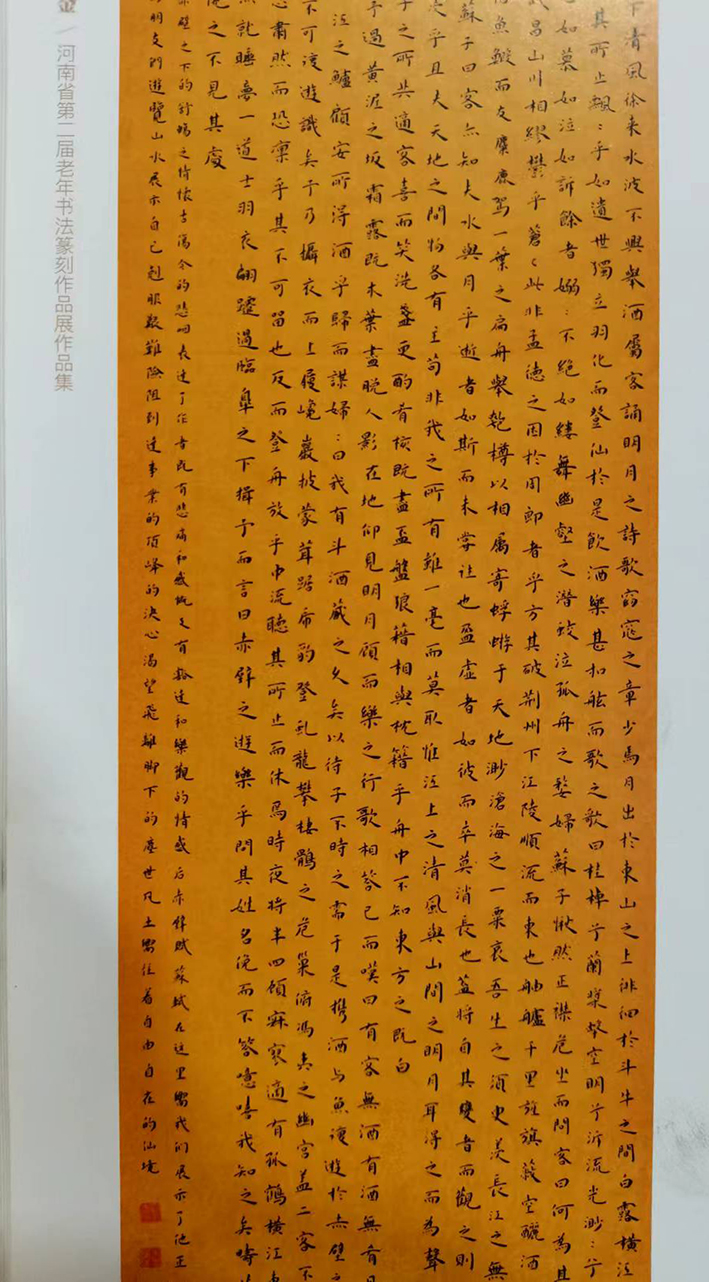 金 / 河南省第二届老年书法篆刻作品展作品集
下清風徐来水波不興舉酒屬客誦明月之詩歌窈窕之章少焉月出於東山之上徘徊於斗牛之間白露橫江
其所止飄:乎如遺世獨立羽化而登仙於是飲酒樂甚扣舷而歌之歌曰桂棹兮蘭槳擊空明兮泝流光渺:兮
如慕如泣如訴餘音嫋:不絕如縷舞幽壑之潛蛟泣孤舟之嫠婦蘇子愀然正襟危坐而問客曰何為其
昌山川相繆鬱乎蒼〻此非孟德之困於周郎者乎方其破荆州下江陵順流而東也舳艫千里旌旗蔽空釃酒
侶魚蝦而友麋鹿駕一葉之扁舟舉匏樽以相屬寄蜉蝣于天地渺滄海之一粟哀吾生之須臾羡長江之無
蘇子曰客亦知夫水與月乎逝者如斯而未嘗往也盈虛者如彼而卒莫消長也蓋将自其變者而觀之則
乎且夫天地之間物各有主苟非我之所有雖一毫而莫取惟江上之清風與山間之明月耳得之而為聲
子之所共適客喜而笑洗盞更酌肴核既盡盃盤狼籍相與枕籍乎舟中不知東方之既白
予過黃泥之坂霜露既木葉盡脱人影在地仰見明月顧而樂之行歌相答已而嘆曰有客無酒有酒無肴月
江之鱸顧安所得酒乎歸而謀婦:曰我有斗酒藏之久矣以待子不時之需于是携酒与魚復遊於赤壁之
不可復遊識矣予乃攝衣而上履巉巖披蒙茸踞虎豹登虬龍攀棲鶻之危巢俯馮夷之幽宫盖二客不
肅然而恐凛乎其不可留也反而登舟放乎中流聽其所止而休焉時夜将半四顧寂寥適有孤鶴橫江東
就睡夢一道士羽衣翩躚過臨皋之下揖予而言曰赤壁之遊樂乎問其姓名俛而不答噫嘻我知之矣疇
之不見其處
赤壁之下的舒暢之情懷的悲咽表达了作者既有悲痛和感慨又有豁達和樂觀的情感后赤壁賦蘇軾在这里嚮我们展示了他
朋友们遊覽山水展示自己剋服艱難險阻到達事業的頂峰的決心渴望飛離脚下的塵世凡土嚮往着自由自在的仙境